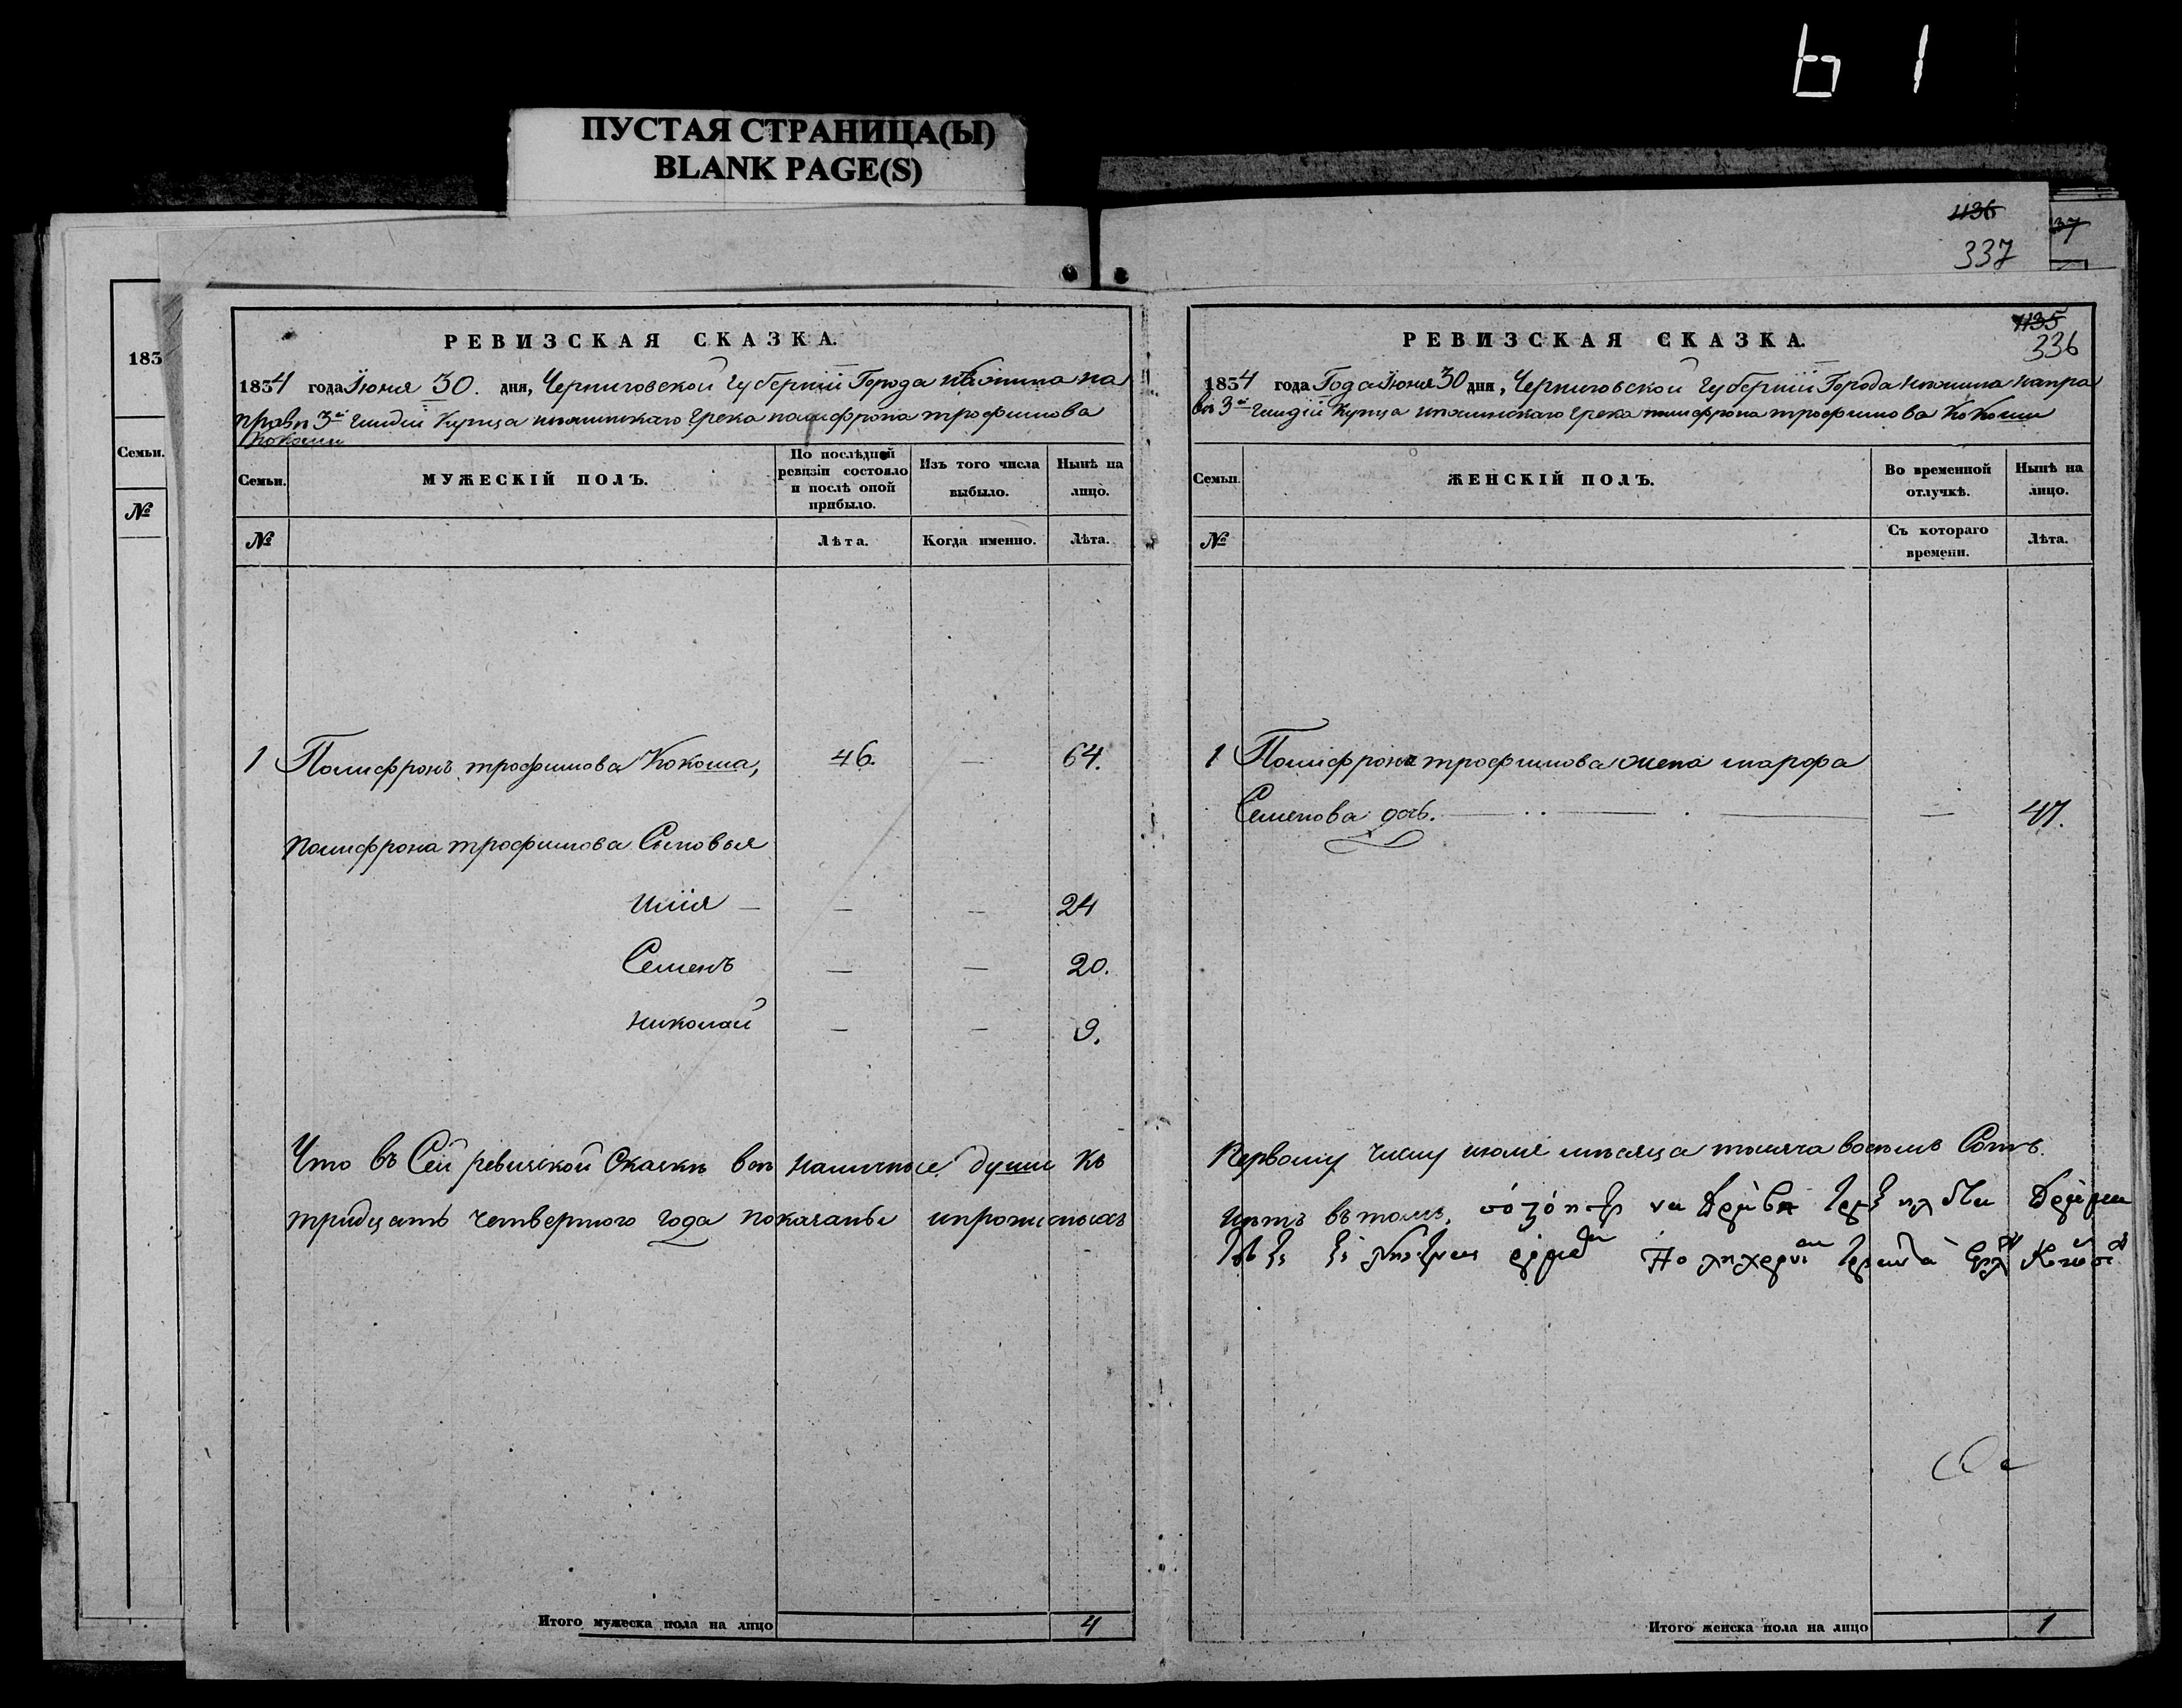 ПУСТАЯ СТРАНИЦА(Ы)
BLANK PAGE(S)
1136
337
37
183
Семьи.
№
РЕВИЗСКАЯ СКАЗКА.
1834 года Іюня 30. дня, Черниговской Губерніи Города Нѣжина на
правѣ 3й Гилдіи Купца нѣжинскаго Грека полифрона трофимова
Кокоши
Семьи.
МУЖЕСКІЙ ПОЛЪ.
По послѣдней ревизіи состояло и послѣ оной прибыло.
Изъ того числа выбыло.
Нынѣ на лицо.
№
Лѣта.
Когда именно.
Лѣта.
1 Полифронъ трофимова Кокоша, 46. — 64.
полифрона трофимова Сыновья
Илія — — — 24
Семенъ — — 20.
Николай — — 9.
Что въ Сей ревизской Сказки всѣ наличные души къ
тридцать четвертого года показаны и прописныхъ
Итого мужеска пола на лицо 4
1135
336
РЕВИЗСКАЯ СКАЗКА.
1834 года Года Іюня 30 дня, Черниговской Губерніи Города Нѣжина на пра
вѣ 3й Гилдіи Купца нѣжинскаго Грека полифрона трофимова Кокоши
Семьи.
ЖЕНСКІЙ ПОЛЪ.
Во временной отлучкѣ.
Нынѣ на лицо.
№
Съ котораго времени.
Лѣта.
1 Полифрона трофимова жена марфа
Семенова дочь. — 47.
Первому числу июля мѣсяца тысяча восемь Сотъ
нѣтъ въ томъ.
Итого женска пола на лицо 1